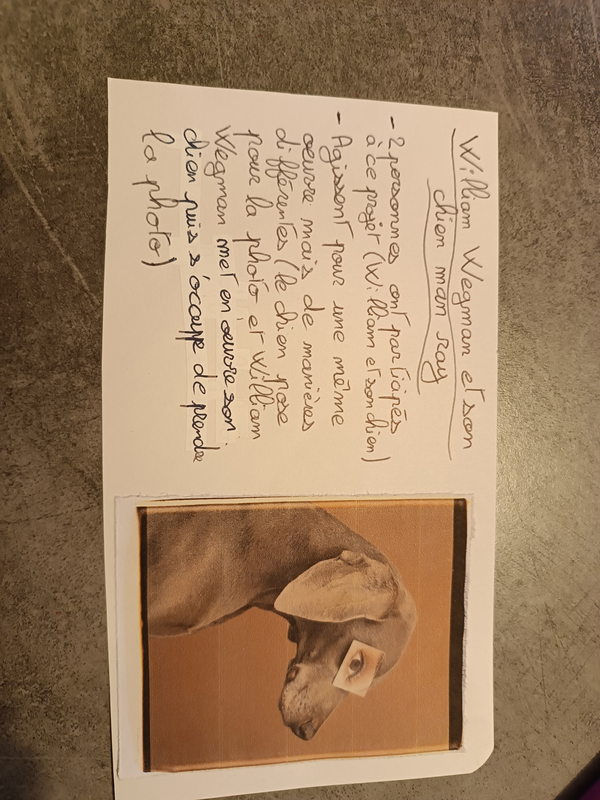 William Wegman et son
chien man ray
- 2 personnes ont participés
à ce projet (William et son chien)
- Agissent pour une même
œuvre mais de manières
différentes (le chien pose
pour la photo et William
Wegman met en œuvre son
chien puis s'occupe de prendre
la photo)